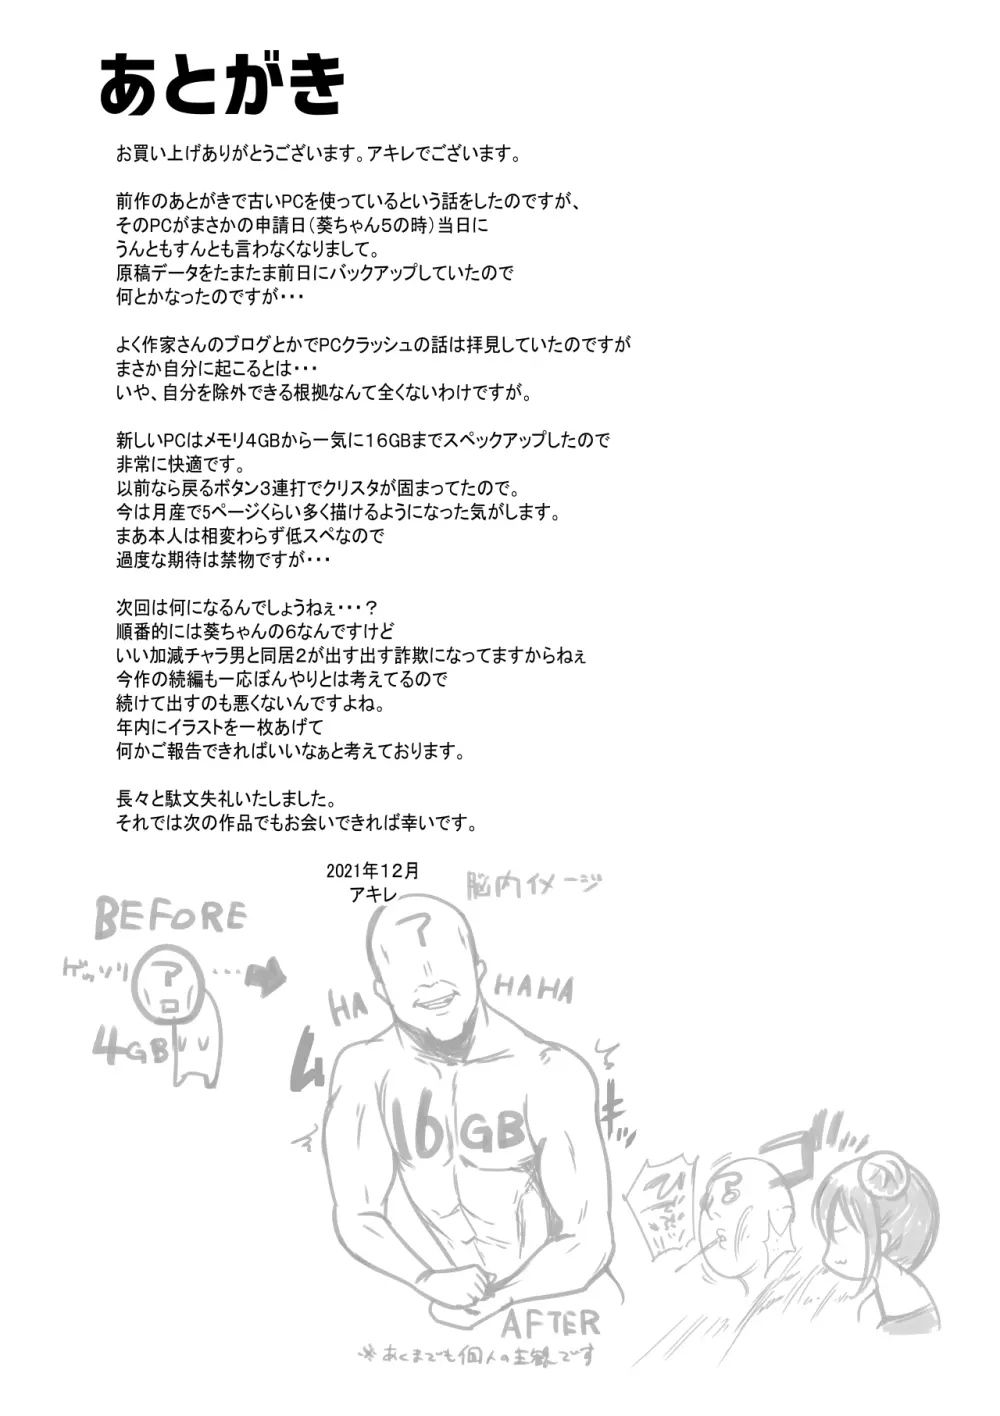 あとがき
お買い上げありがとうございます。アキレでございます。
前作のあとがきで古いPCを使っているという話をしたのですが、
そのPCがまさかの申請日（葵ちゃん５の時）当日に
うんともすんとも言わなくなりまして。
原稿データをたまたま前日にバックアップしていたので
何とかなったのですが・・・
よく作家さんのブログとかでPCクラッシュの話は拝見していたのですが
まさか自分に起こるとは・・・
いや、自分を除外できる根拠なんて全くないわけですが。
新しいPCはメモリ４GBから一気に１６GBまでスペックアップしたので
非常に快適です。
以前なら戻るボタン３連打でクリスタが固まってたので。
今は月産で5ページくらい多く描けるようになった気がします。
まあ本人は相変わらず低スペなので
過度な期待は禁物ですが・・・
次回は何になるんでしょうねぇ・・・？
順番的には葵ちゃんの６なんですけど
いい加減チャラ男と同居２が出す出す詐欺になってますからねぇ
今作の続編も一応ぼんやりとは考えてるので
続けて出すのも悪くないんですよね。
年内にイラストを一枚あげて
何かご報告できればいいなぁと考えております。
長々と駄文失礼いたしました。
それでは次の作品でもお会いできれば幸いです。
2021年１２月
アキレ
脳内イメージ
BEFORE
ゲッソリ
ア
・・・
4GB
ア
HA
HAHA
ムキッ
16GB
AFTER
※あくまでも個人の主観です
ア